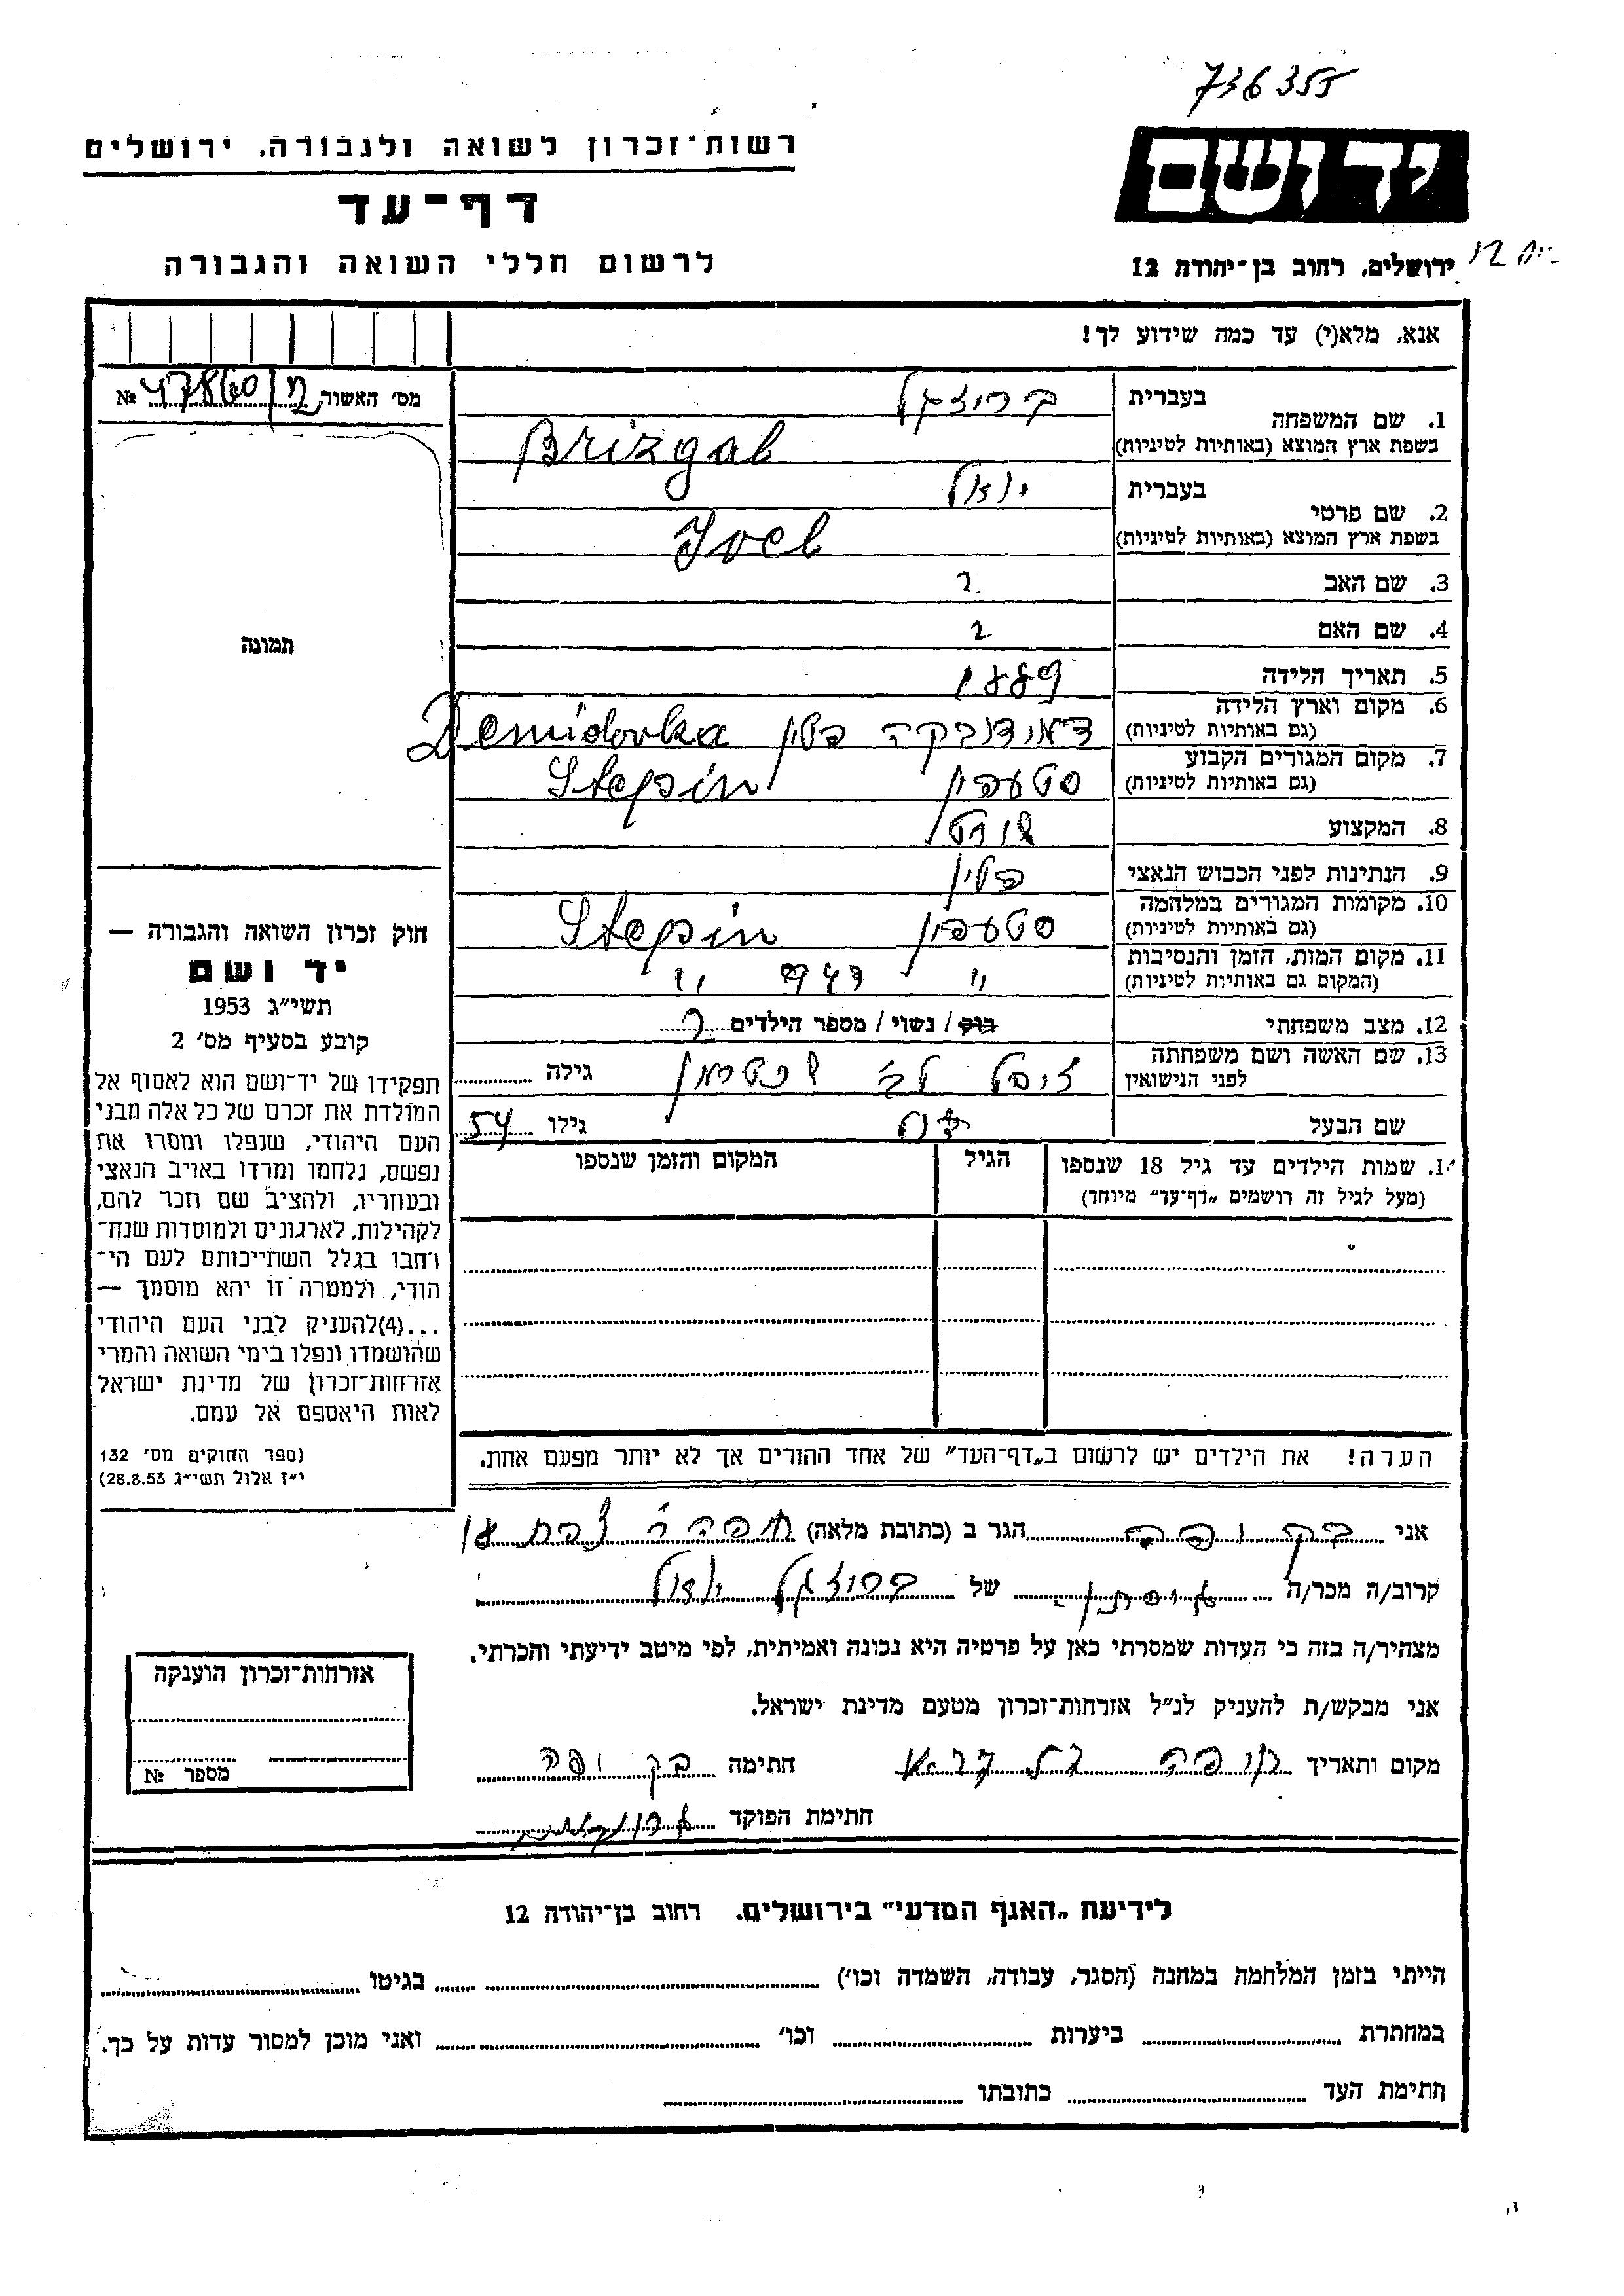 736355
רשות־זכרון לשואה ולגבורה, ירושלים
יד ושם
דף־עד
לרשום חללי השואה והגבורה
ירושלים, רחוב בן־יהודה 12
אנא, מלא(י) עד כמה שידוע לך!
מס׳ האשור № 47860
1. שם המשפחה
בעברית ברוזגל
בשפת ארץ המוצא (באותיות לטיניות) Brizgal
2. שם פרטי
בעברית יואל
בשפת ארץ המוצא (באותיות לטיניות) Joel
תמונה
3. שם האב ?
4. שם האם ?
5. תאריך הלידה 1889
6. מקום וארץ הלידה
(גם באותיות לטיניות) דמידובקה פולין Demidovka
7. מקום המגורים הקבוע
(גם באותיות לטיניות) סטעפין Stepin
8. המקצוע
9. הנתינות לפני הכבוש הנאצי פולין
10. מקומות המגורים במלחמה
(גם באותיות לטיניות) סטעפין Stepin
11. מקום המות, הזמן והנסיבות
(המקום גם באותיות לטיניות) " 943 "
12. מצב משפחתי רווק / נשוי / מספר הילדים 2
13. שם האשה ושם משפחתה
לפני הנישואין
גילה
שם הבעל גילו 54
14. שמות הילדים עד גיל 18 שנספו
(מעל לגיל זה רושמים „דף־עד" מיוחד)
הגיל
המקום והזמן שנספו
חוק זכרון השואה והגבורה —
יד ושם
תשי״ג 1953
קובע בסעיף מס׳ 2
תפקידו של יד־ושם הוא לאסוף אל
המולדת את זכרם של כל אלה מבני
העם היהודי, שנפלו ומסרו את
נפשם, נלחמו ומרדו באויב הנאצי
ובעוזריו, ולהציב שם וזכר להם,
לקהילות, לארגונים ולמוסדות שנח־
רבו בגלל השתייכותם לעם הי־
הודי, ולמטרה זו יהא מוסמך —
...(4) להעניק לבני העם היהודי
שהושמדו ונפלו בימי השואה והמרי
אזרחות־זכרון של מדינת ישראל
לאות היאספם אל עמם.
(ספר החוקים מס׳ 132
י״ז אלול תשי״ג 28.8.53)
הערה! את הילדים יש לרשום ב„דף־העד" של אחד ההורים אך לא יותר מפעם אחת.
אני בק ופה הגר ב (כתובת מלאה) חפה
קרוב/ה מכר/ה של ברוזגל יואל
מצהיר/ה בזה כי העדות שמסרתי כאן על פרטיה היא נכונה ואמיתית, לפי מיטב ידיעתי והכרתי.
אני מבקש/ת להעניק לנ״ל אזרחות־זכרון מטעם מדינת ישראל.
מקום ותאריך חתימה בק ופה
חתימת הפוקד
אזרחות־זכרון הוענקה
מספר №
לידיעת „האגף המדעי" בירושלים, רחוב בן־יהודה 12
הייתי בזמן המלחמה במחנה (הסגר, עבודה, השמדה וכו׳) בגיטו
במחתרת ביערות וכו׳ ואני מוכן למסור עדות על כך.
חתימת העד כתובתו